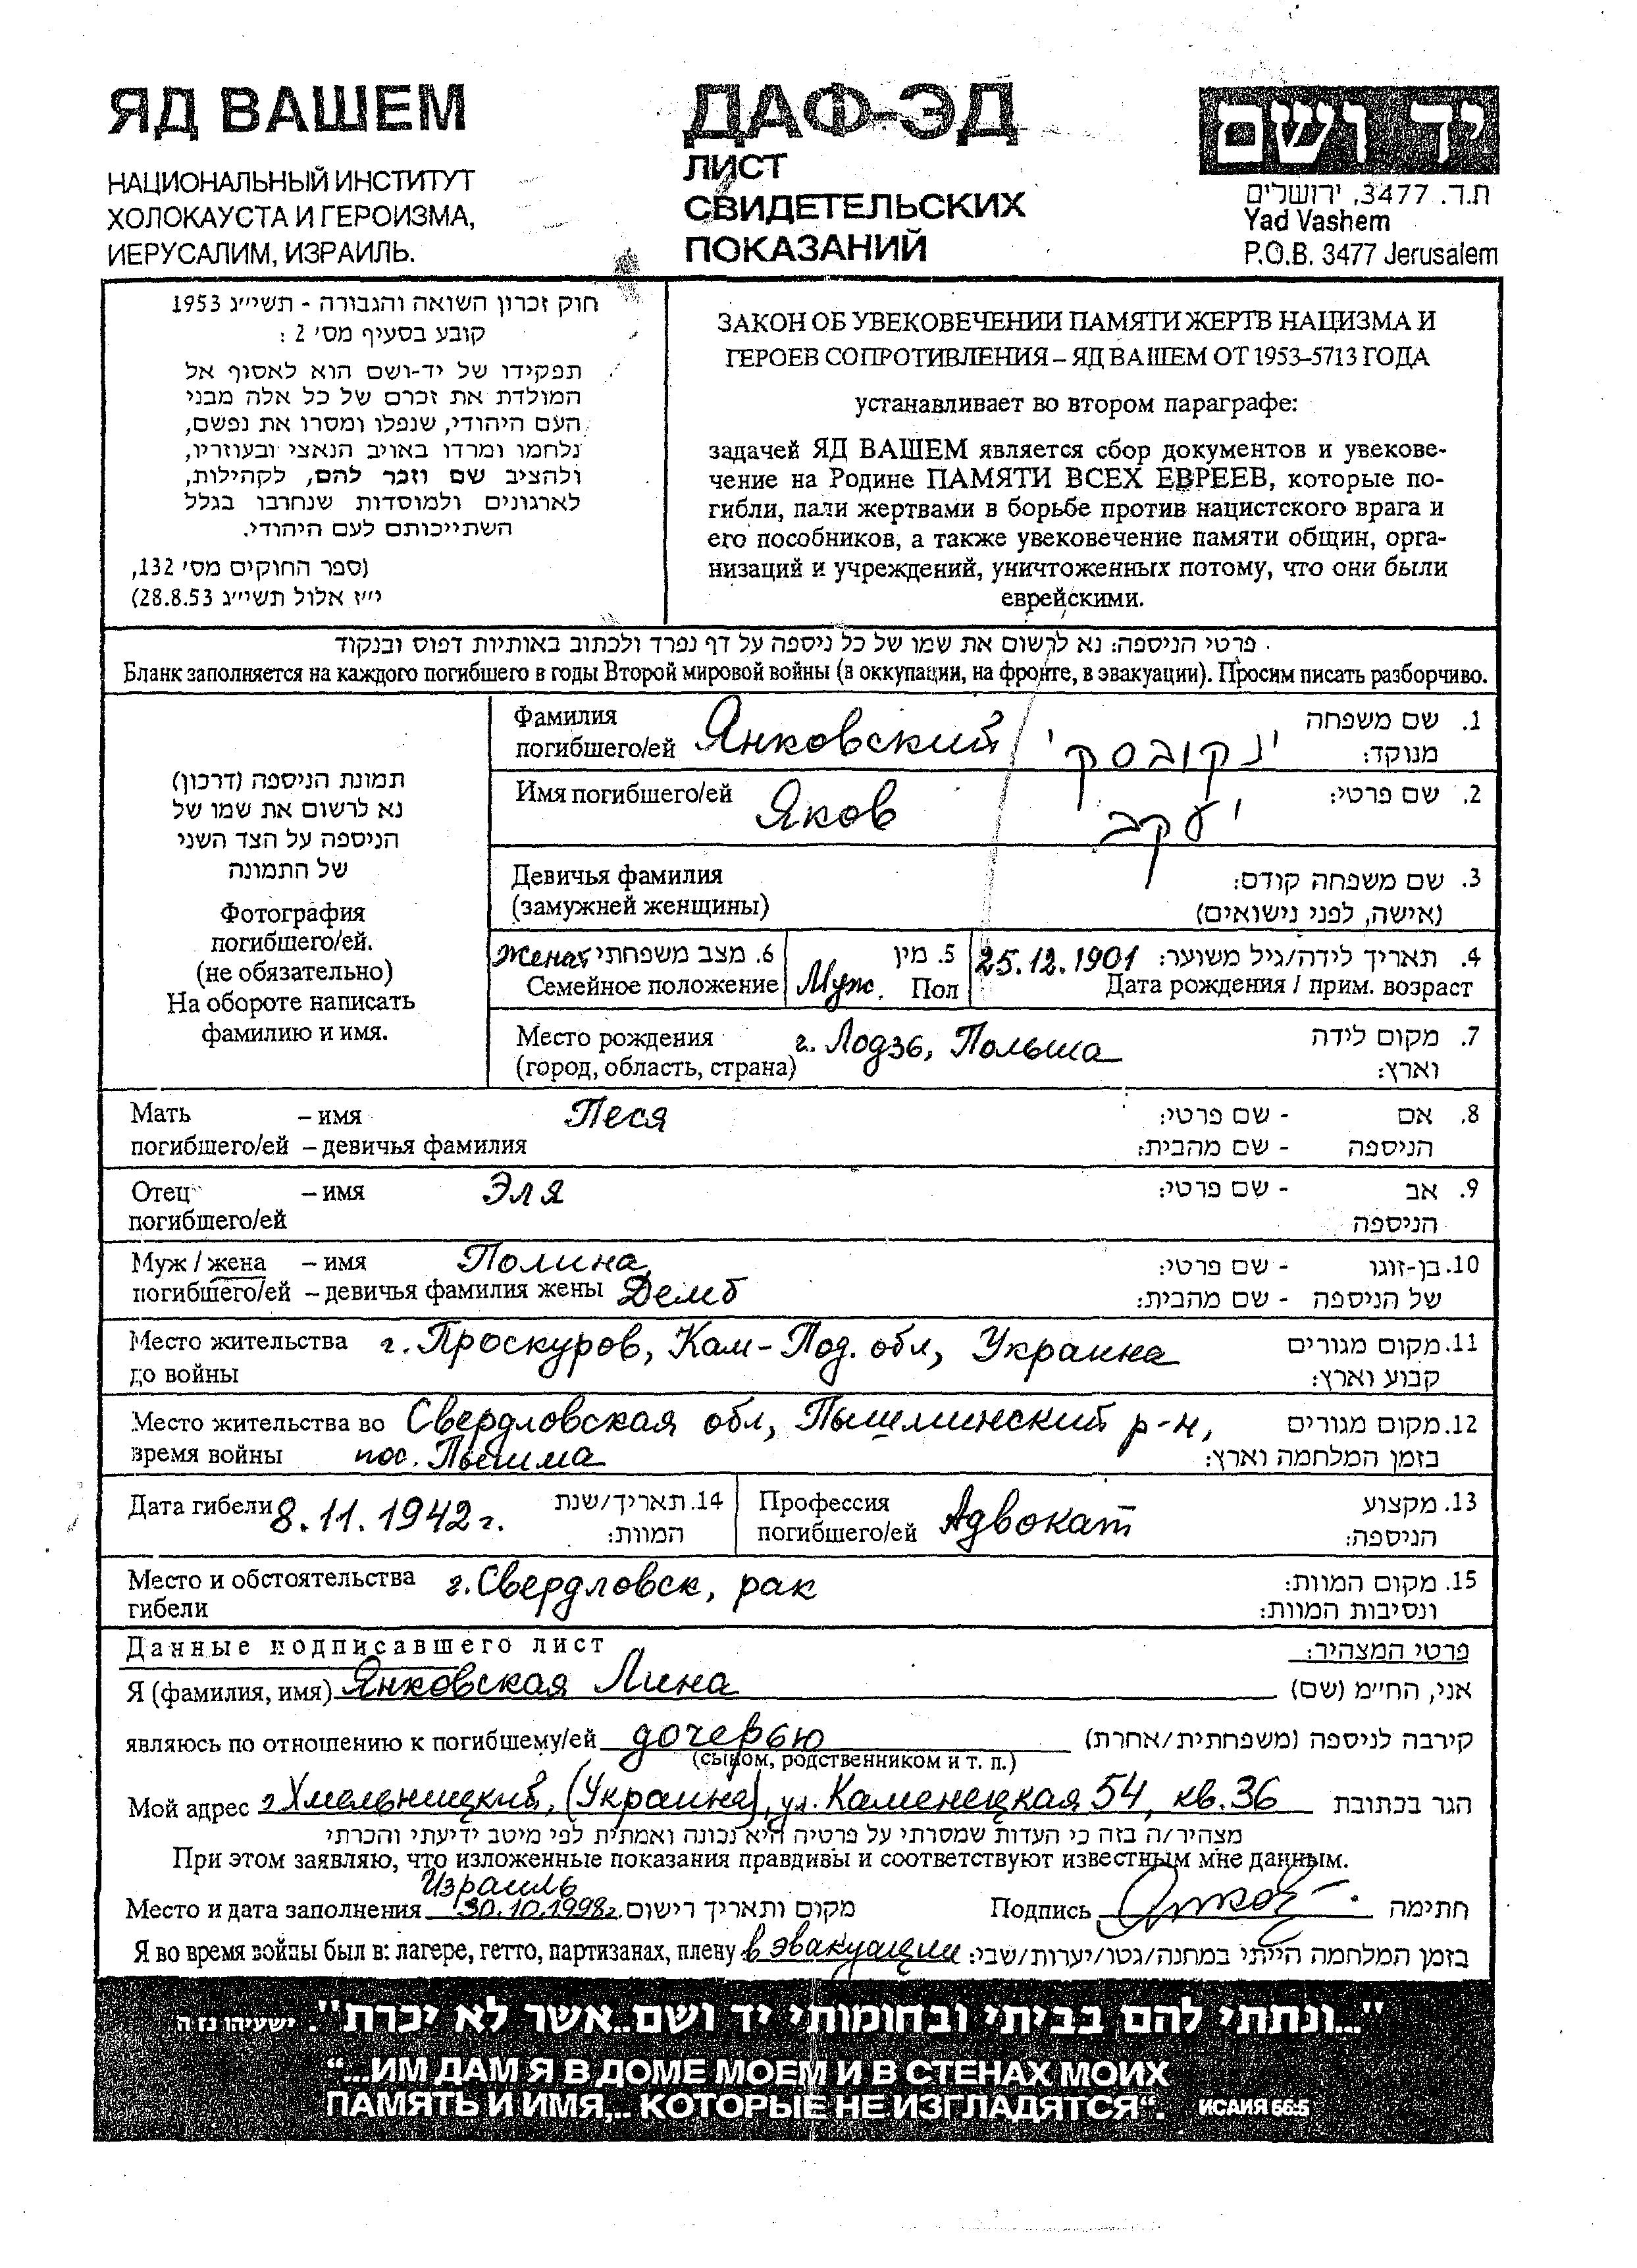 ЯД ВАШЕМ
НАЦИОНАЛЬНЫЙ ИНСТИТУТ
ХОЛОКАУСТА И ГЕРОИЗМА,
ИЕРУСАЛИМ, ИЗРАИЛЬ.
ДАФ-ЭД
ЛИСТ
СВИДЕТЕЛЬСКИХ
ПОКАЗАНИЙ
יד ושם
ת.ד. 3477, ירושלים
Yad Vashem
P.O.B. 3477 Jerusalem
חוק זכרון השואה והגבורה - תשי״ג 1953
קובע בסעיף מס׳ 2 :
תפקידו של יד-ושם הוא לאסוף אל
המולדת את זכרם של כל אלה מבני
העם היהודי, שנפלו ומסרו את נפשם,
נלחמו ומרדו באויב הנאצי ובעוזריו,
ולהציב שם וזכר להם, לקהילות,
לארגונים ולמוסדות שנחרבו בגלל
השתייכותם לעם היהודי.
(ספר החוקים מס׳ 132,
י״ז אלול תשי״ג 28.8.53)
ЗАКОН ОБ УВЕКОВЕЧЕНИИ ПАМЯТИ ЖЕРТВ НАЦИЗМА И
ГЕРОЕВ СОПРОТИВЛЕНИЯ – ЯД ВАШЕМ ОТ 1953–5713 ГОДА
устанавливает во втором параграфе:
задачей ЯД ВАШЕМ является сбор документов и увекове-
чение на Родине ПАМЯТИ ВСЕХ ЕВРЕЕВ, которые по-
гибли, пали жертвами в борьбе против нацистского врага и
его пособников, а также увековечение памяти общин, орга-
низаций и учреждений, уничтоженных потому, что они были
еврейскими.
פרטי הניספה: נא לרשום את שמו של כל ניספה על דף נפרד ולכתוב באותיות דפוס ובנקוד
Бланк заполняется на каждого погибшего в годы Второй мировой войны (в оккупации, на фронте, в эвакуации). Просим писать разборчиво.
תמונת הניספה (דרכון)
נא לרשום את שמו של
הניספה על הצד השני
של התמונה
Фотография
погибшего/ей.
(не обязательно)
На обороте написать
фамилию и имя.
Фамилия погибшего/ей Янковский ינקובסקי 1. שם משפחה מנוקד:
Имя погибшего/ей Яков יעקב 2. שם פרטי:
Девичья фамилия 3. שם משפחה קודם:
(замужней женщины) (אישה, לפני נישואים)
Женат 6. מצב משפחתי 5. מין 25.12.1901 4. תאריך לידה/גיל משוער:
Семейное положение Муж. Пол Дата рождения / прим. возраст
Место рождения г. Лодзь, Польша 7. מקום לידה
(город, область, страна) וארץ:
Мать – имя Песя 8. אם - שם פרטי:
погибшего/ей – девичья фамилия הניספה - שם מהבית:
Отец – имя Эля 9. אב - שם פרטי:
погибшего/ей הניספה
Муж / жена – имя Полина, 10. בן-זוגו - שם פרטי:
погибшего/ей – девичья фамилия жены Демб של הניספה - שם מהבית:
Место жительства г. Проскуров, Кам-Под. обл, Украина 11. מקום מגורים
до войны קבוע וארץ:
Место жительства во Свердловская обл, Пышминский р-н, 12. מקום מגורים
время войны пос. Пышма בזמן המלחמה וארץ:
Дата гибели 8.11.1942 г. 14. תאריך/שנת המוות:
Профессия погибшего/ей Адвокат 13. מקצוע הניספה:
Место и обстоятельства г. Свердловск, рак 15. מקום המוות:
гибели ונסיבות המוות:
Данные подписавшего лист פרטי המצהיר:
Я (фамилия, имя) Янковская Лина אני, החי״מ (שם)
являюсь по отношению к погибшему/ей дочерью קירבה לניספה (משפחתית/אחרת)
(сыном, родственником и т. п.)
Мой адрес г Хмельницкий, (Украина), ул. Каменецкая 54, кв. 36 הגר בכתובת
מצהיר/ה בזה כי העדות שמסרתי על פרטיה היא נכונה ואמתית לפי מיטב ידיעתי והכרתי
При этом заявляю, что изложенные показания правдивы и соответствуют известным мне данным.
Израиль
Место и дата заполнения 30.10.1998г. מקום ותאריך רישום Подпись חתימה
Я во время войны был в: лагере, гетто, партизанах, плену в эвакуации בזמן המלחמה הייתי במחנה/גטו/יערות/שבי:
"...ונתתי להם בביתי ובחומותי יד ושם..אשר לא יכרת". ישעיהו נו ה
“...ИМ ДАМ Я В ДОМЕ МОЕМ И В СТЕНАХ МОИХ
ПАМЯТЬ И ИМЯ,.. КОТОРЫЕ НЕ ИЗГЛАДЯТСЯ“. ИСАИЯ 56:5